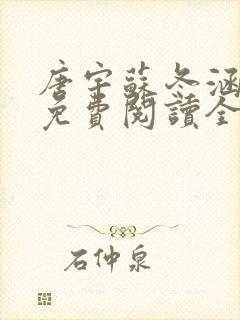 唐宇蘇冬涵
免費閱讀全
石仲泉